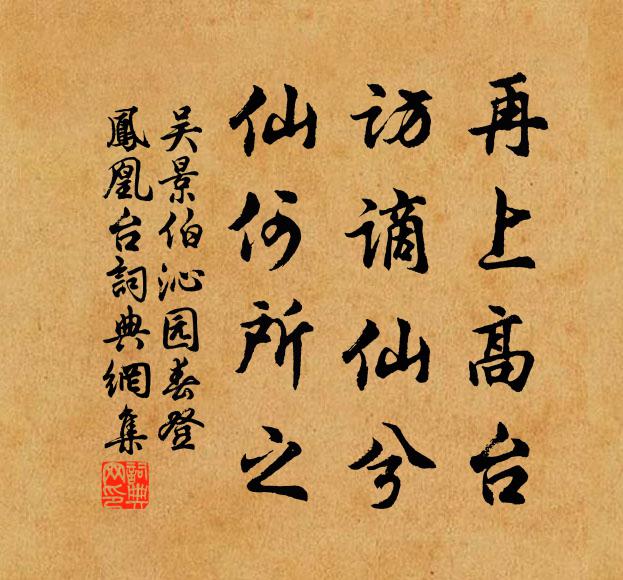 再上高台
访谪仙兮
仙何所之
吴景伯沁园春登
鳳凰台詞典網集
詞典网印